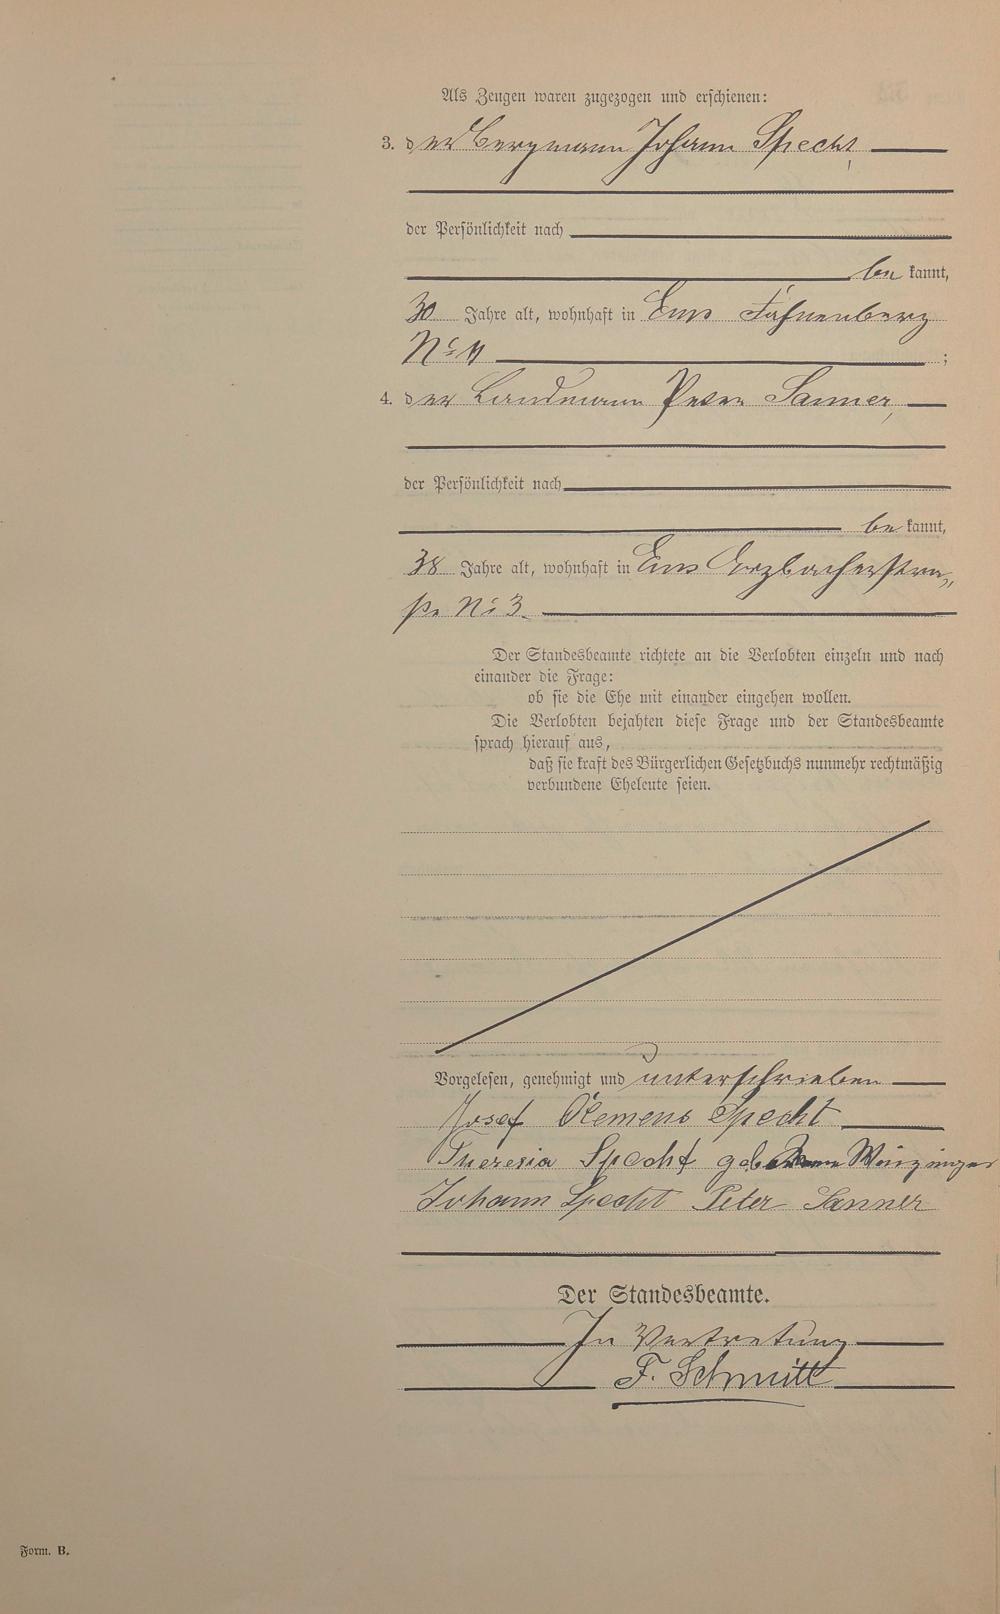 Als Zeugen waren zugezogen und erschienen:
3. der Bergmann Johann Specht,
der Persönlichkeit nach
be kannt,
30 Jahre alt, wohnhaft in Ems Fahnenberg
No 11 ;
4. der Landmann Peter Sanner,
der Persönlichkeit nach
be kannt,
38 Jahre alt, wohnhaft in Ems Arzbacherstra„
ße No 3
Der Standesbeamte richtete an die Verlobten einzeln und nach
einander die Frage:
ob sie die Ehe mit einander eingehen wollen.
Die Verlobten bejahten diese Frage und der Standesbeamte
sprach hierauf aus,
daß sie kraft des Bürgerlichen Gesetzbuchs nunmehr rechtmäßig
verbundene Eheleute seien.
Vorgelesen, genehmigt und unterschrieben
Josef Klemens Specht
Theresia Specht geborene
Johann Specht Peter Sanner
Der Standesbeamte.
In Vertretung
F. Schmitt
Form. B.